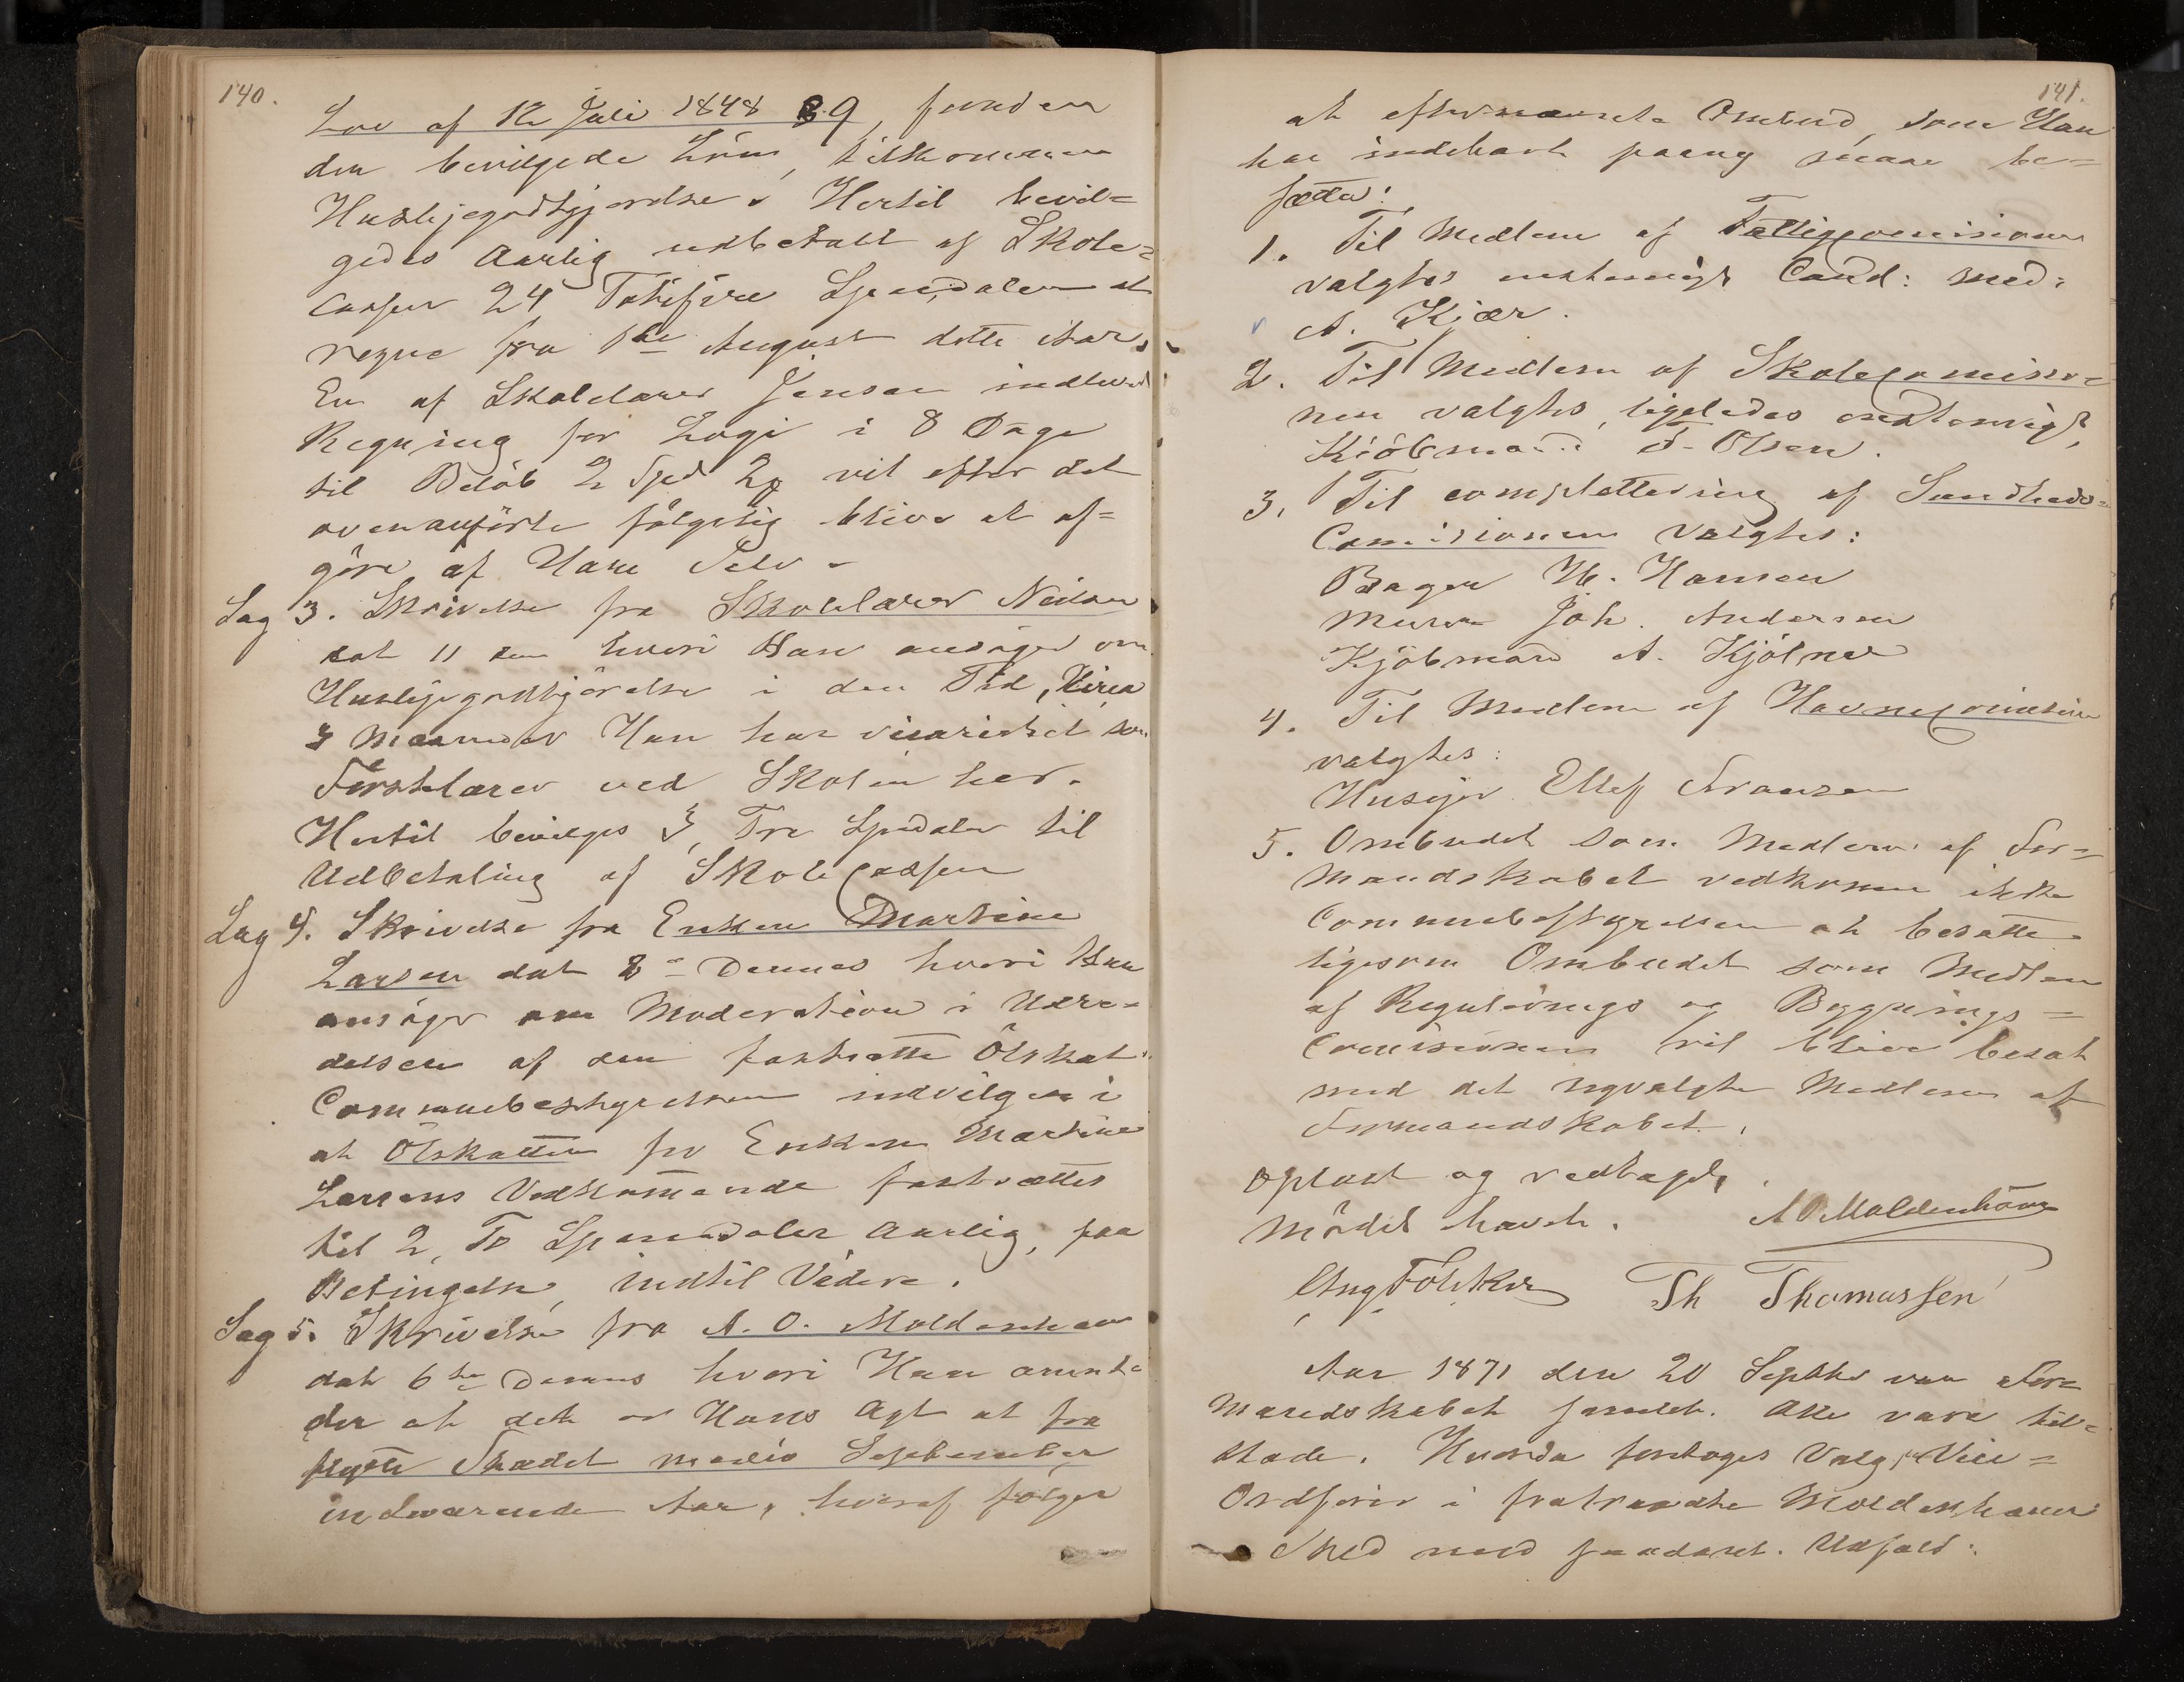 140.
Lov af 12 Juli 1848 § 9, foruden
den bevilgede Lön, tilkommer
Huslejegodtgjørelse. Hertil bevil=
gedes Aarlig udbetalt af Skole=
Cassen 24 Totifire Speciedaler at
regne fra 1ste August dette Aar.
En af Skolelærer Jensen indleveret
Regning for Logi i 8 Dage
til Belöb 2 Spd vil efter det
ovenanförte fölgelig blive at af=
göre af Ham Selv.
Sag 3. Skrivelse fra Skolelærer Neilsen
dat 11 hvori Han ansöger om
Huslejegodtgjörelse i den Tid, Circa
3 Maaneder Han har vicarieret som
Förstelærer ved Skolen her.
Hertil bevilges 3, Tre Spdaler til
Udbetaling af SkoleCassen
Sag 4. Skrivelse fra Enken Martine
Larsen dat 8de Dennes hvori Hun
ansöger om Moderation i Udre=
delsen af den fastsatte Ölskat.
Communebestyrelsen indvilger i
at Ölskatten for Enken Martine
Larsens Vedkommende fastsættes
til 2, To Speciedaler Aarlig, paa
Betingelse, indtil Videre.
Sag 5. Skrivelse fra A. O. Moldenhauer
dat 6te Dennes hvori Han anmel=
der at det er Hans Agt at fra
flytte Stædet medio September
indeværende Aar, hvoraf fölger
141.
at efternævnte Ombud, som Han
har indehavt paany maae be=
sættes:
1. Til Medlem af Fattigcomisionen
valgtes enstemigt Cand: med:
A. Kjær.
2. Til Medlem af Skolecomissio=
nen valgtes, ligeledes enstemigt,
Kiöbmand F. Olsen.
3. Til complettering af Sundheds=
Comisionen valgtes:
Bager H. Hansen
Murer Joh. Andersen
Kjöbmand A. Kjölner
4. Til Medlem af Havnecomision
valgtes:
Husejer Ellef Franzen
5. Ombudet som Medlem af For=
mandskabet vedkommer ikke
Communebestyrelsen at besætte
ligesom Ombudet som Medlem
af Regulerings og Bygnings=
Comisionen vil blive besat
med det nyvalgte Medlem af
Formandskabet.
Oplæst og vedtaget,
Mödet hævet. A O Moldenhauer
Th Thomassen
Aar 1871 den 20 Septbr var For=
mandskabet samlet. Alle vare til=
stæde. Hvorda foretoges Valg paa Vice=
Ordförer i fratraadte Moldenhauers
Sted med saadant Udfald: